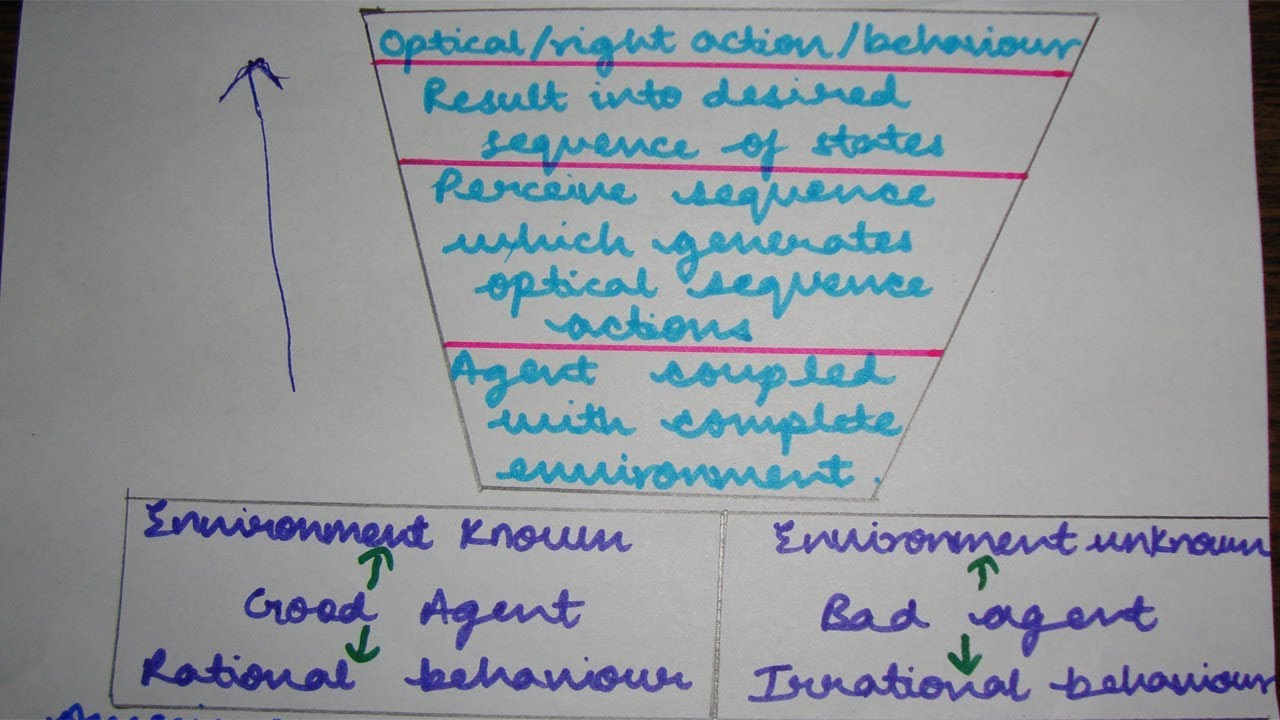 Optical/right action/behaviour
Result into desired
sequence of states
Perceive sequence
which generates
optical sequence
actions
Agent coupled
with complete
environment.
Environment Known
Good Agent
Rational behaviour
Environment unknown
Bad agent
Irrational behaviour